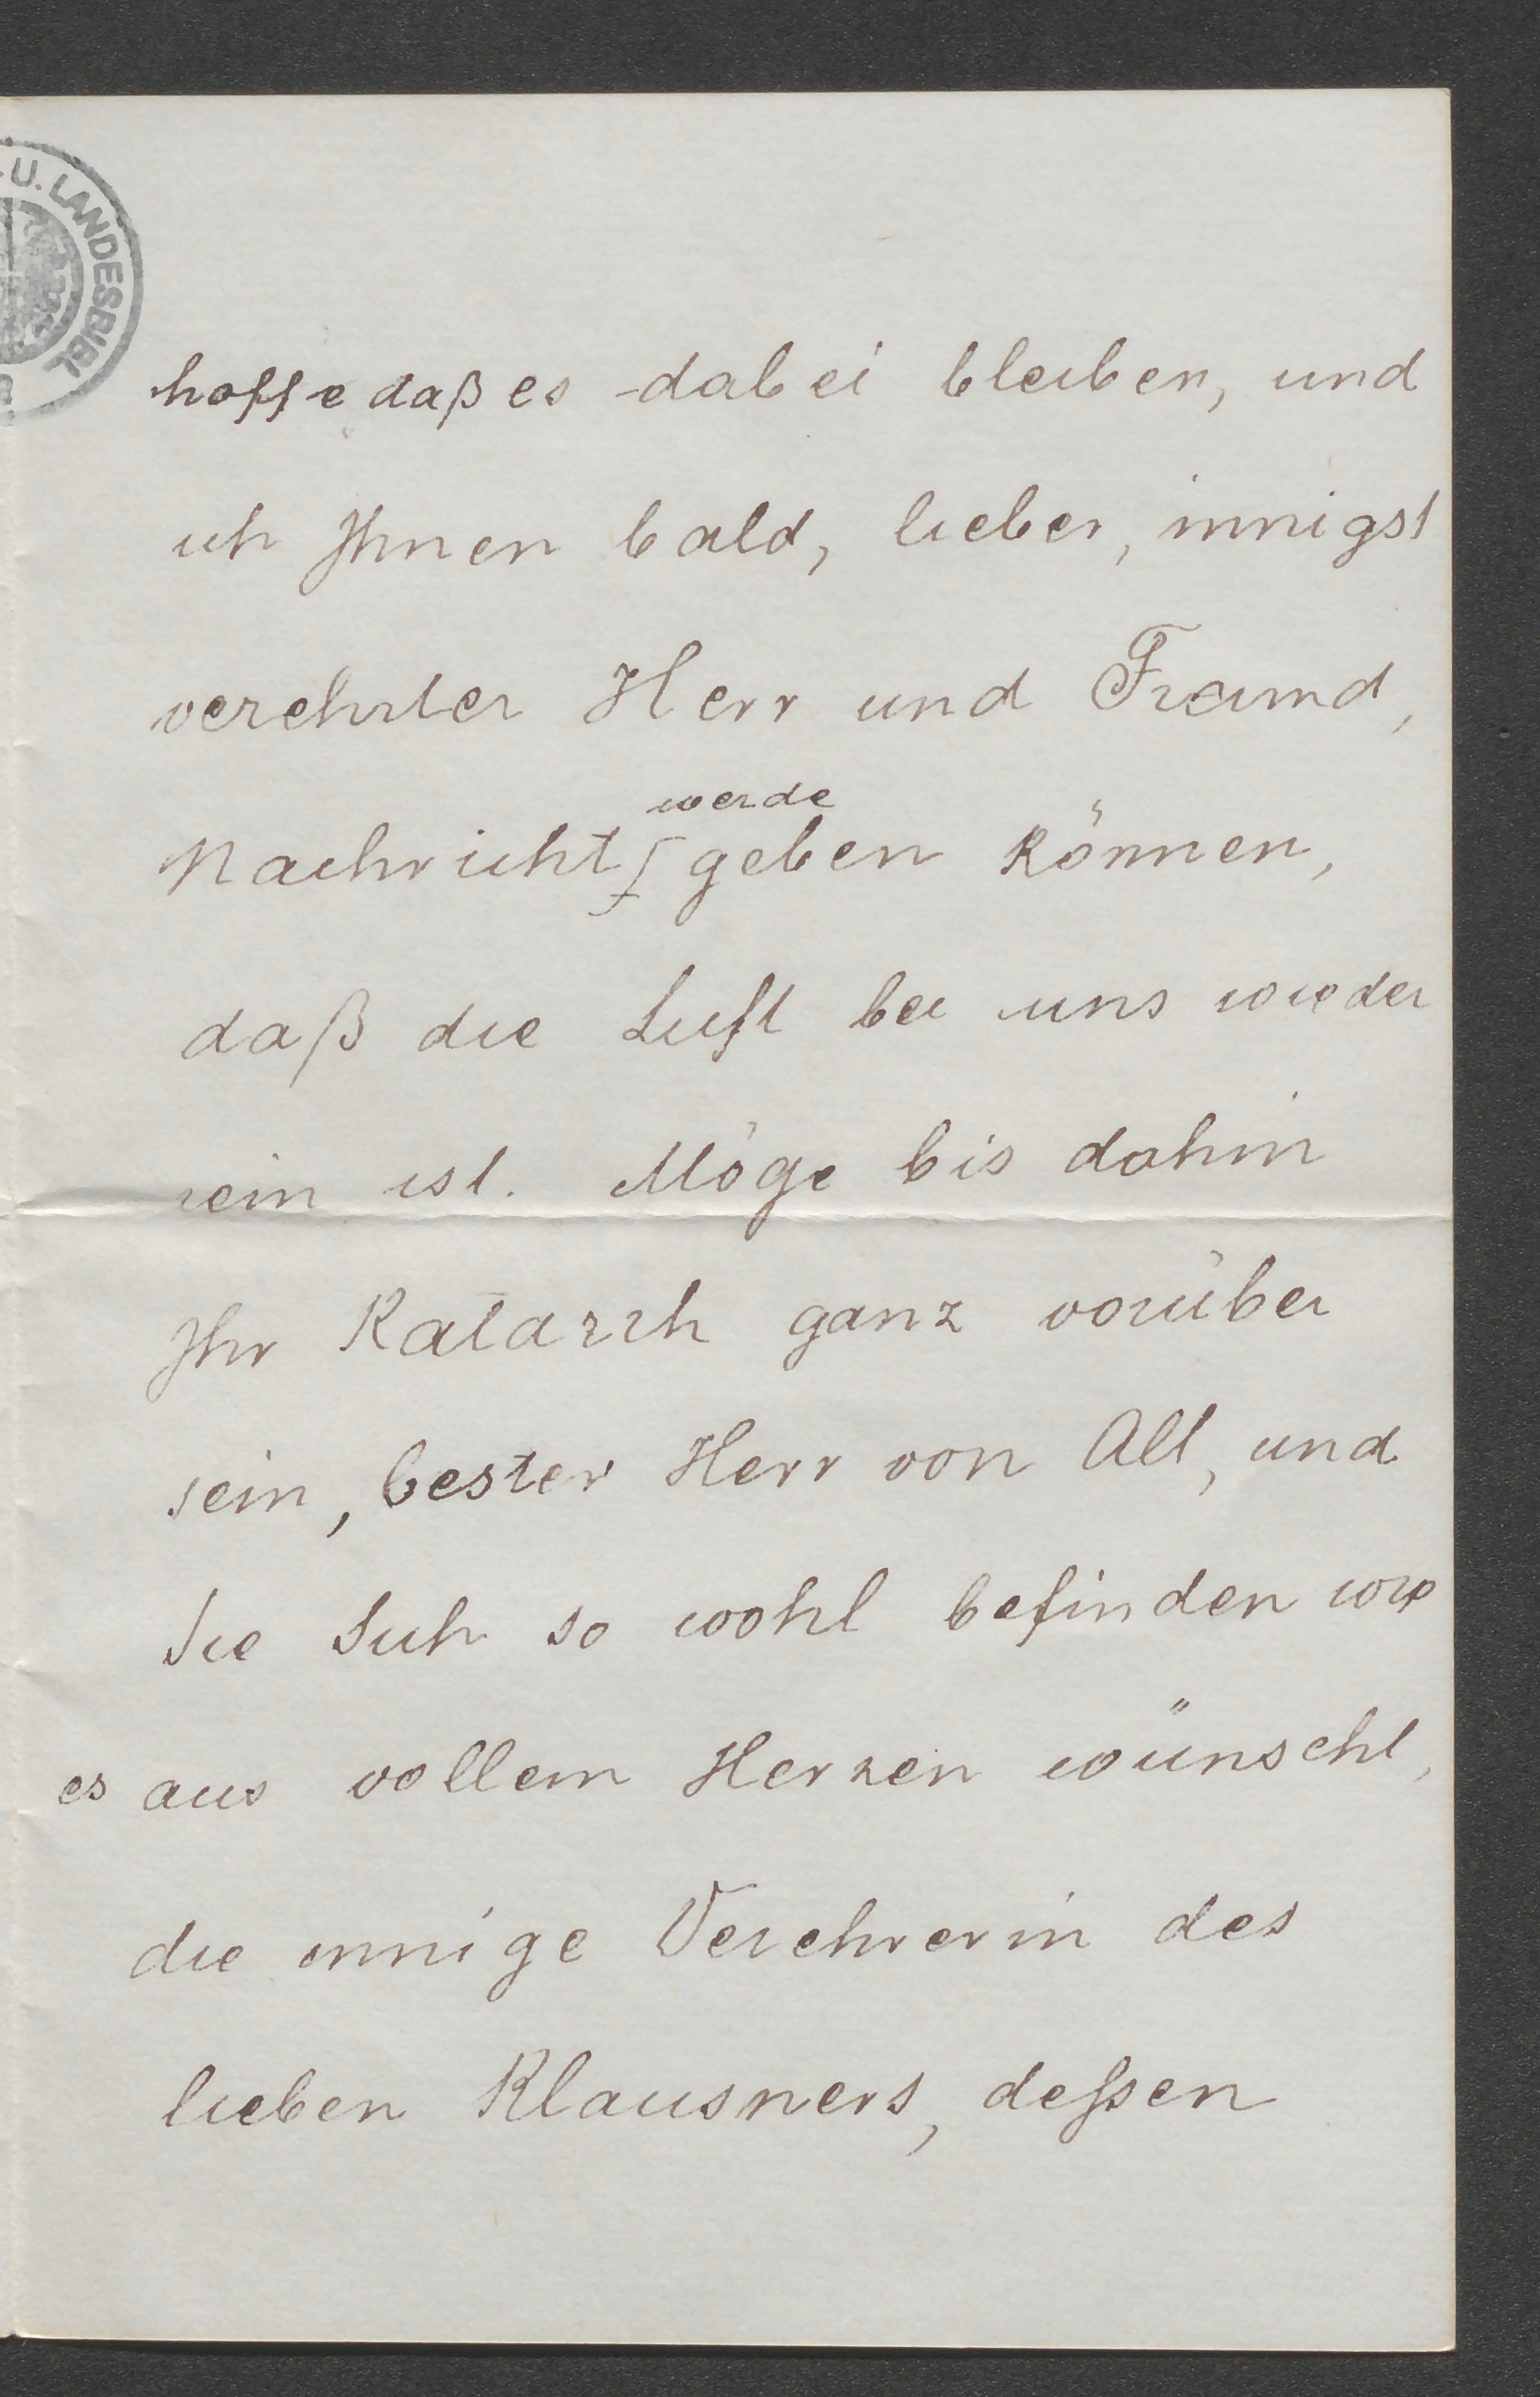 U. LANDESBIBL
hoffe daß es dabei bleiben, und
ich Ihnen bald, lieber, innigst
verehrter Herr und Freund,
werde
Nachricht geben können,
daß die Luft bei uns wieder
rein ist. Möge bis dahin
Ihr Katarrh ganz vorüber
sein, bester Herr von Alt, und
Sie Sich so wohl befinden wie
es aus vollem Herzen wünscht,
die innige Verehrerin des
lieben Klausners, dessen